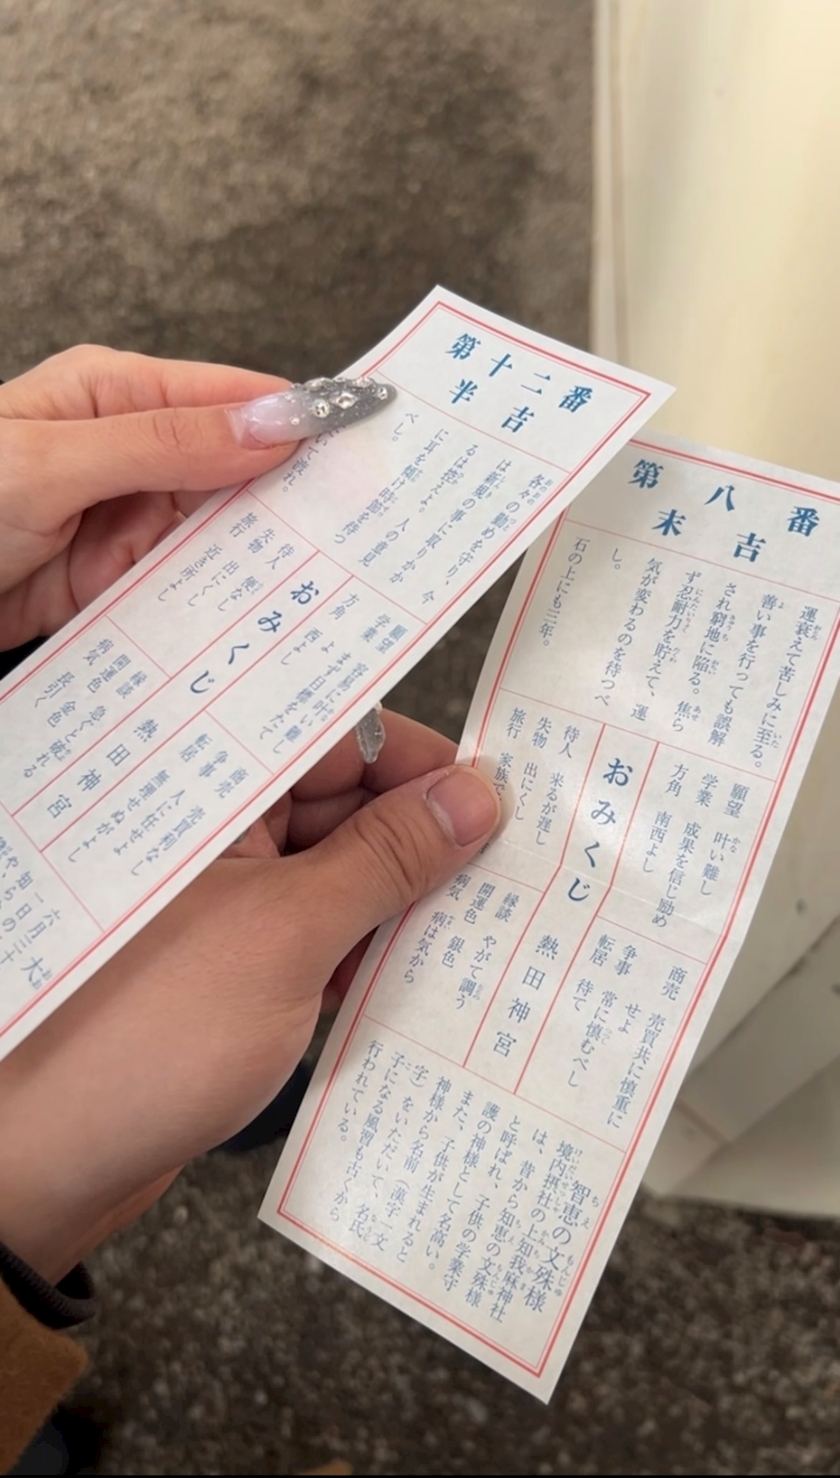 第十二番
半吉
各々の勤めを守り、今
は新規の事に取りかか
るは控えよ。人の意見
に耳を傾け時節を待つ
べし。
いて渡れ。
願望 容易に叶い難し
学業 まず目標をたて
よ
方角 西よし
おみくじ
待人 便なし
失物 出にくし
旅行 近き所よし
商売 売買利なし
争事 人に任せよ
転居 無理せぬがよし
熱田神宮
縁談 急ぐと破れる
開運色 金色
病気 長引く
大
六月三十
一日の
知
や、ら
第八番
末吉
運衰えて苦しみに至る。
善い事を行っても誤解
され窮地に陥る。焦ら
ず忍耐力を貯えて、運
気が変わるのを待つべ
し。
石の上にも三年。
願望 叶い難し
学業 成果を信じ励め
方角 南西よし
おみくじ
待人 来るが遅し
失物 出にくし
旅行 家族で
商売 売買共に慎重に
せよ
争事 常に慎むべし
転居 待て
熱田神宮
縁談 やがて調う
開運色 銀色
病気 病は気から
智恵の文殊様
境内摂社の上知我麻神社
は、昔から知恵の文殊様
と呼ばれ、子供の学業守
護の神様として名高い。
また、子供が生まれると
神様から名前（漢字一文
字）をいただいて、名氏
子になる風習も古くから
行われている。